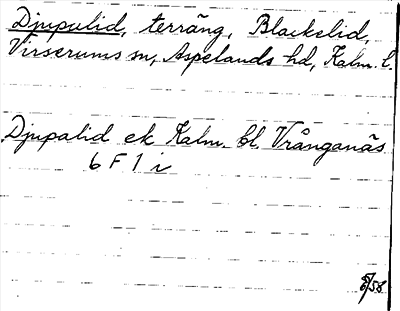 Djupulid, terräng, Blackelid,
Virserums sn, Aspelands hd, Kalm. l.
Djupalid ek Kalm. bl. Vrånganäs
6 F 1 i